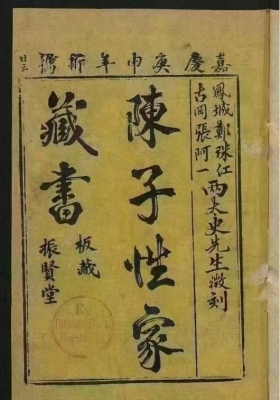 嘉慶庚申年新鐫
鳳城鄭珠江
古岡張阿一
兩太史先生徵刻
陳子性家
藏書
板藏
振賢堂